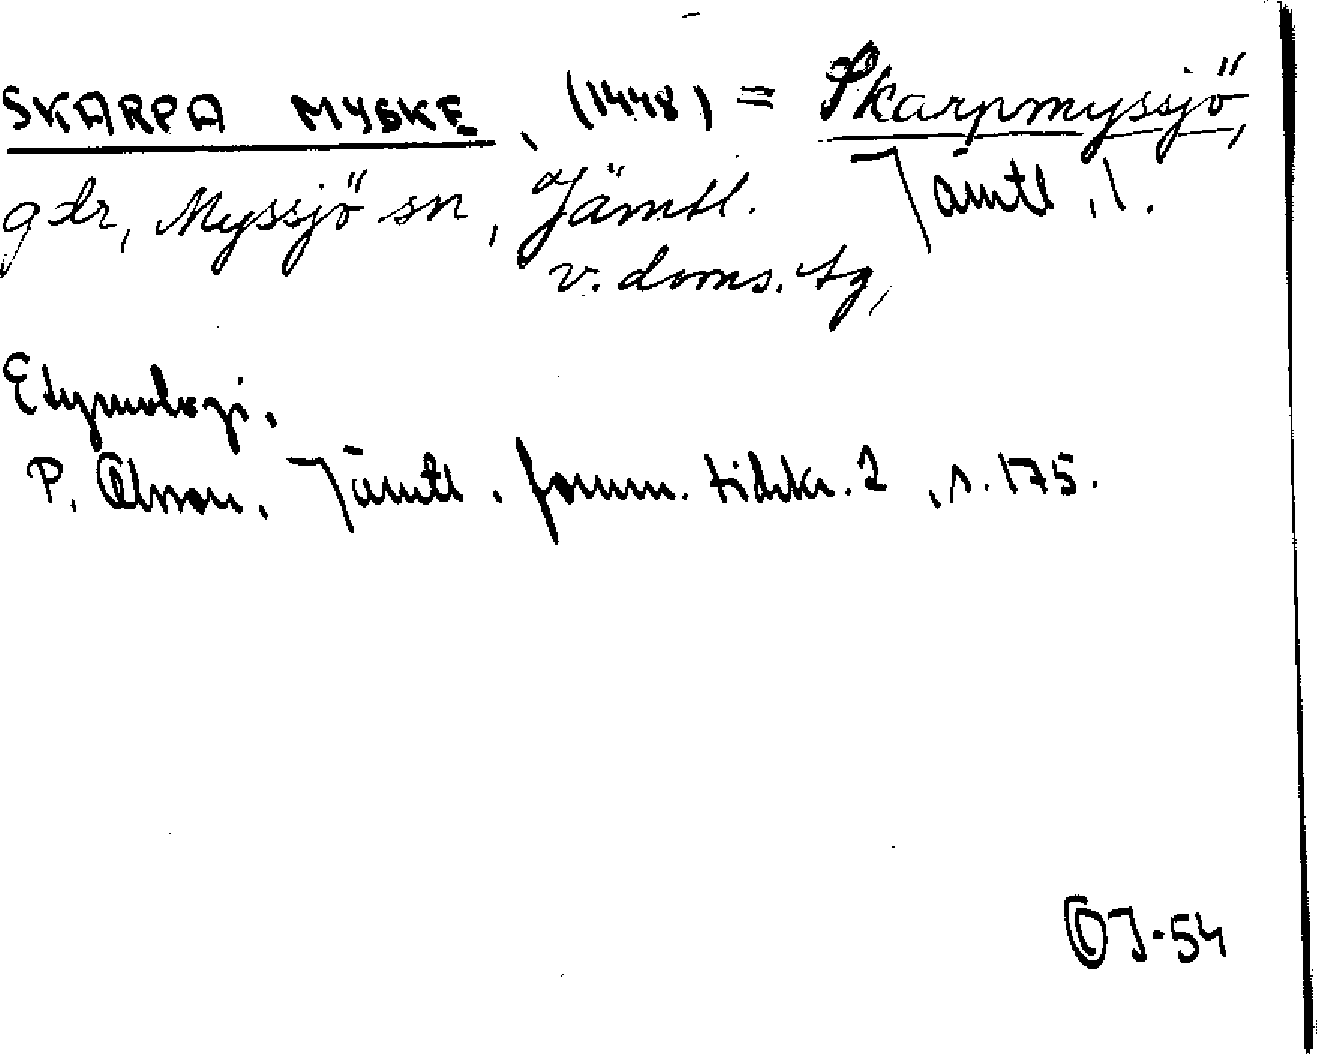 SKARPA MYSKE, (1448) = Skarpmyssjö,
gdr, Myssjö sn, Jämtl. Jämtl. l.
v. doms. tg,
Etymologi.
P. Olsson. Jämtl. fornm. tidskr. 2, s. 175.
OJ-54